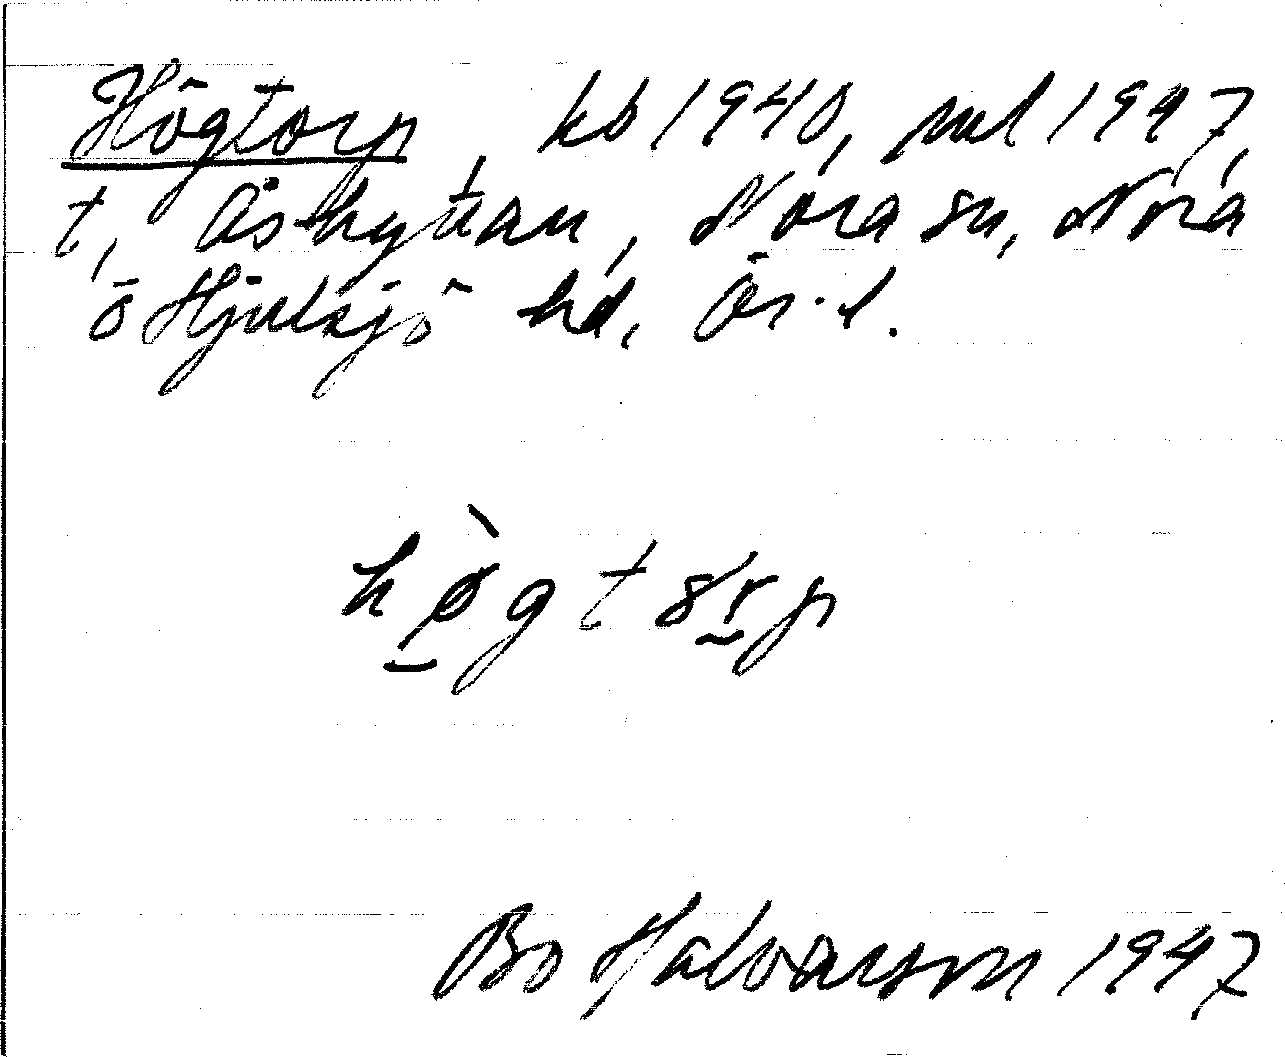 Högtorp, kb 1940, ml 1947,
t, Åshyttan, Nora sn, Nora
o Hjulsjö hd, Ör. l.
hø̀gtorp
Bo Halvarson 1947